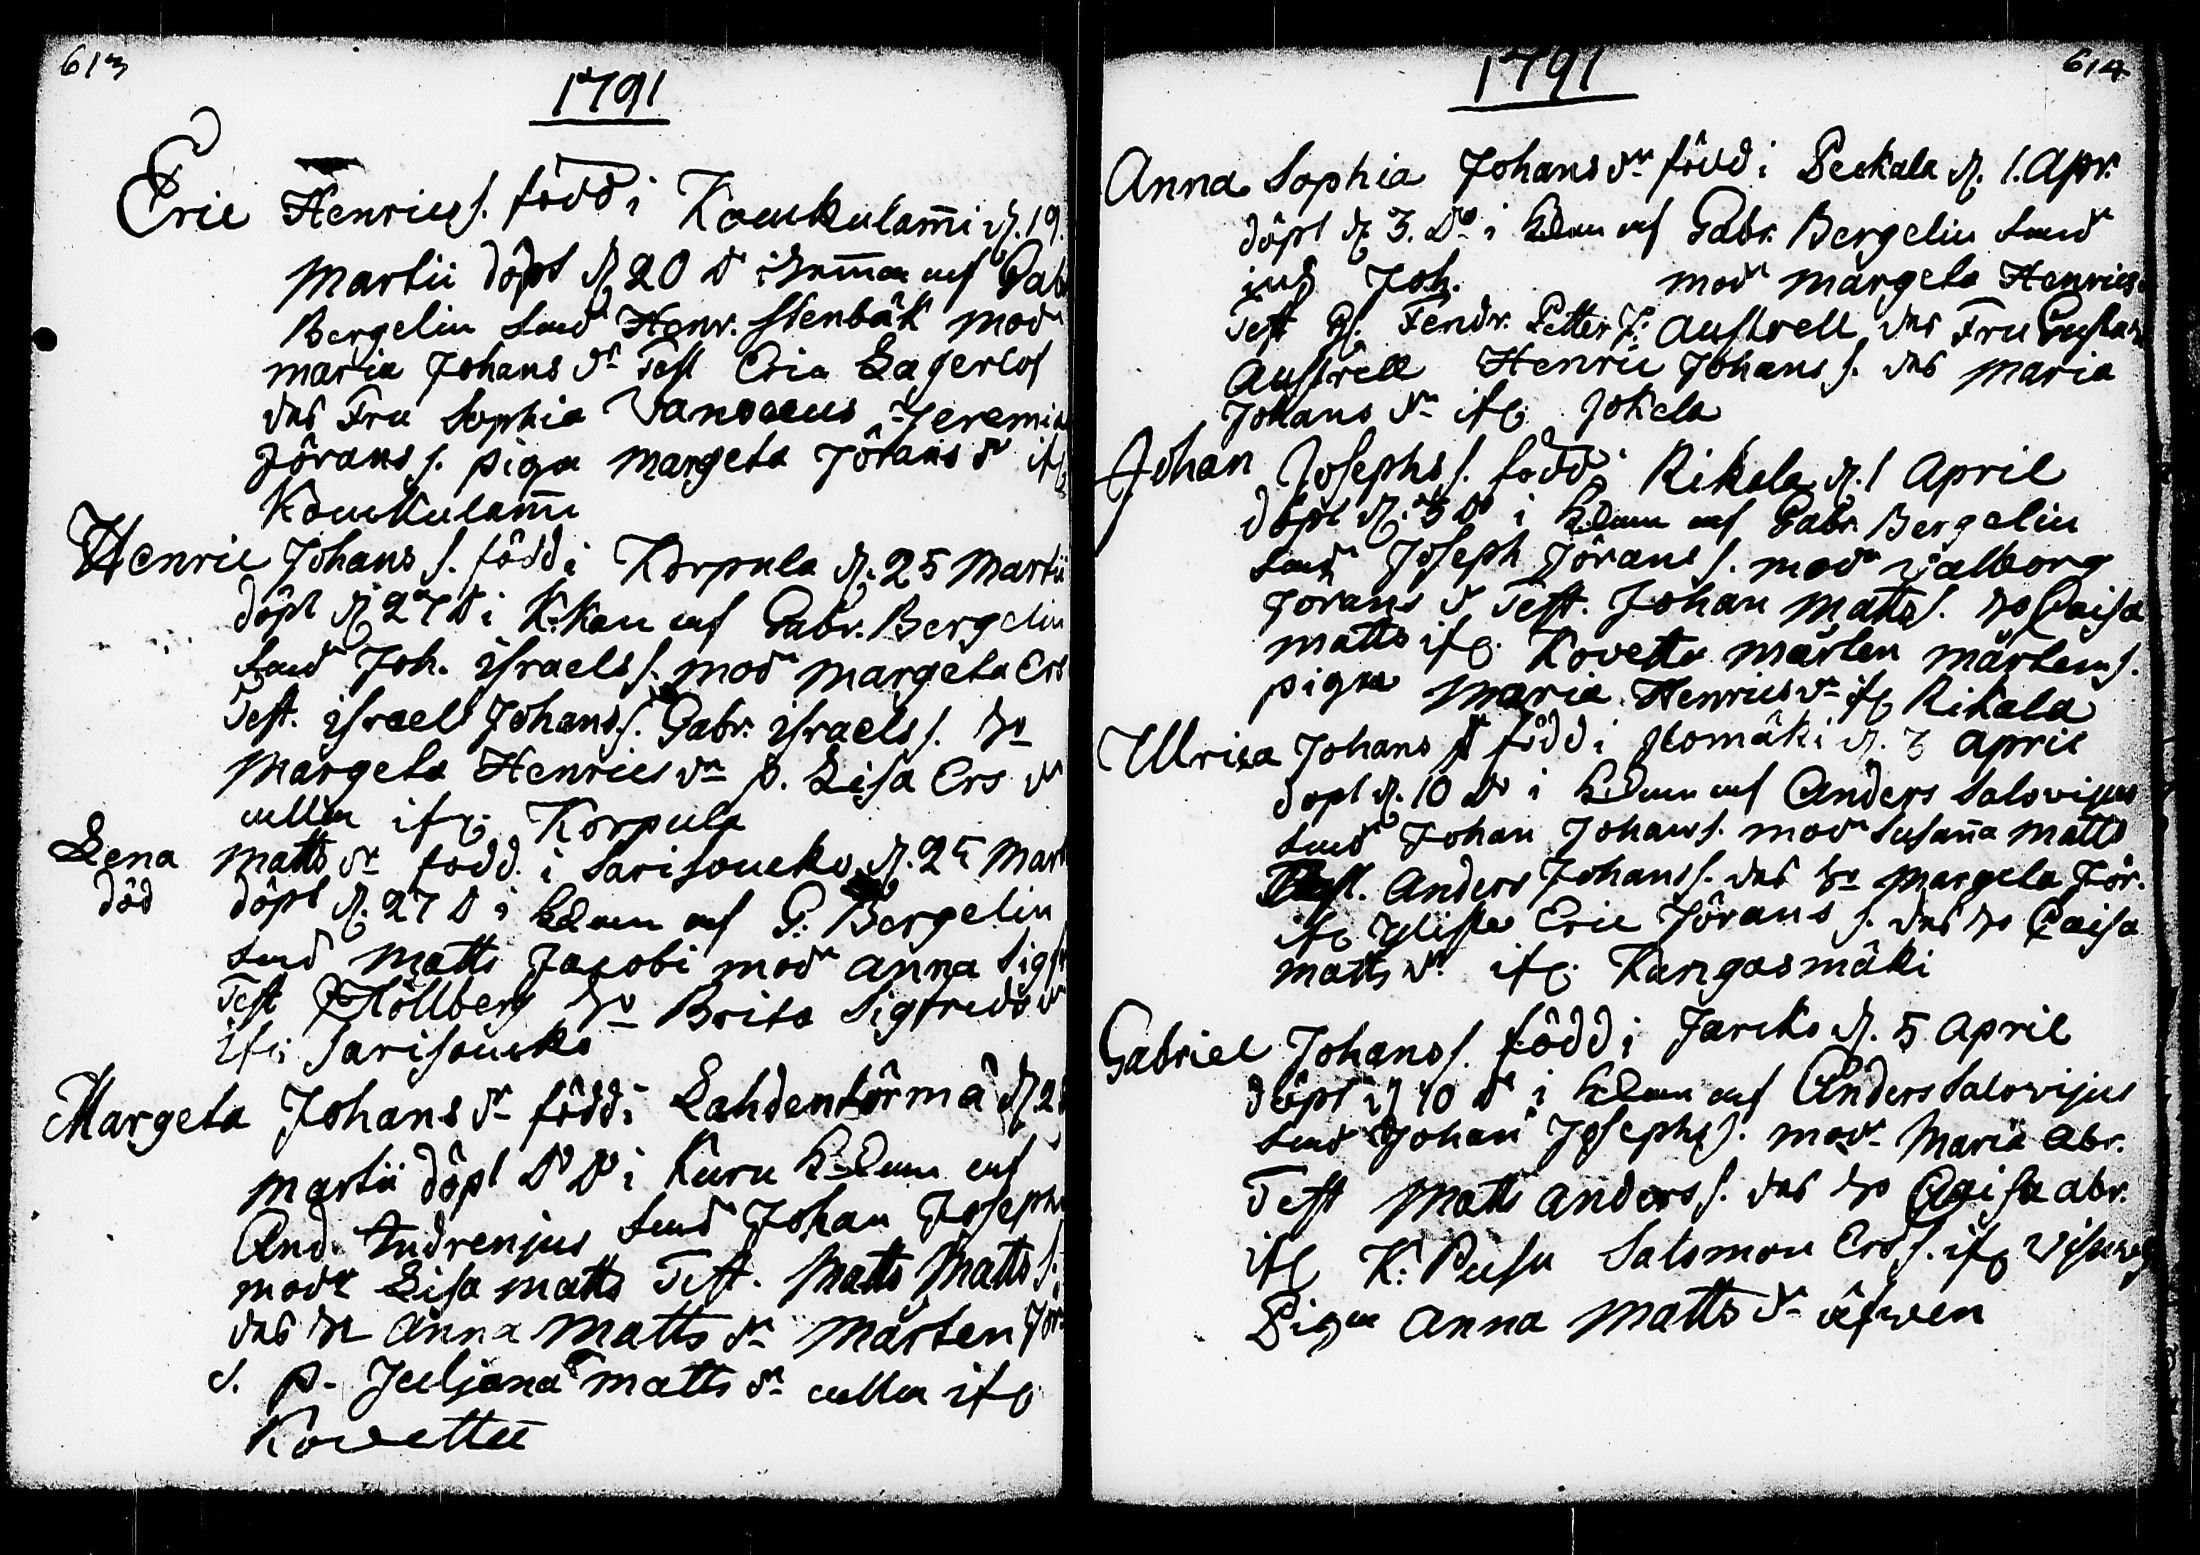 613
1791
Eric Henrics s. född i Kouckulam̄i d. 19.
Martii döpt d. 20 d° af Gabr
Bergelin Land Henr. Stenbäk mod
Maria Johans dr Test Eric Lagerlöf
das Fru Sophia Vanoæus Jeremia
Jörans s. piga Margeta Jörans dr
Kouckulam̄i
Henric Johans s. född i Korpula d. 25 Martii
döpt d. 27 d° i K:kan af Gabr. Bergelin
Land Joh. Israels s. mod Margeta Ers
Test. Israel Johans s. Gabr. Israels s. H:o
Margeta Henrics dr p. Lisa Ers dr
alla if. Korpula
Lena Matts dr född i Sarisoucko d. 25 Mart
död döpt d. 27 d° i af G. Bergelin
Land Matts Jacobi mod Anna Sigfr
Test Höllberg H:o Brita Sigfreds dr
if. Sarisoucko
Margeta Johans dr född i Lahdentörmä d. 2
Martii döpt d° d° i Kuru af
And. Indrenjus Land Johan Josephs
mod Lisa Matts Test. Matts Matts s.
das H:o Anna Matts dr Mårten Jör
s. p. Juljana Matts dr alla if
Kovettu
614
1791
Anna Sophia Johans dr född i Peckala d. 1. Apr.
döpt d. 3. d° i af Gabr. Bergelin Land
Joh. mod Margeta Henrics
Test Fendr. Petter J: Austrell das Fru Gusta
Austrell Henric Johans s. das Maria
Johans dr if Jokela
Johan Josephs s. född i Rikala d. 1 April
döpt d. 3 d° i af Gabr. Bergelin
Land Joseph Jörans s. mod Valborg
Jörans dr Test. Johan Matts s. H:o Caisa
Matts if. Kovettu Mårten Mårtens s.
piga Maria Henrics dr if Rikala
Ulrica Johans dr född i d. April
döpt d. 10 d° i af Anders Salovijus
Land Johan Johans s. mod Susan̄a Matts
Test. Anders Johans s. das H:o Margeta Jör.
if Ylistä Eric Jörans s. das H:o Caisa
Matts dr if. Kangasmäki
Gabriel Johans s. född i Jarcko d. 5 April
döpt d. 10 d° i af Anders Salovijus
Land Johan Josephs s. mod Maria Abr.
Test Matts Anders s. das H:o Caisa Abr.
if K: Pusu Salomon Ers s. if
Piga Anna Matts dr äfven